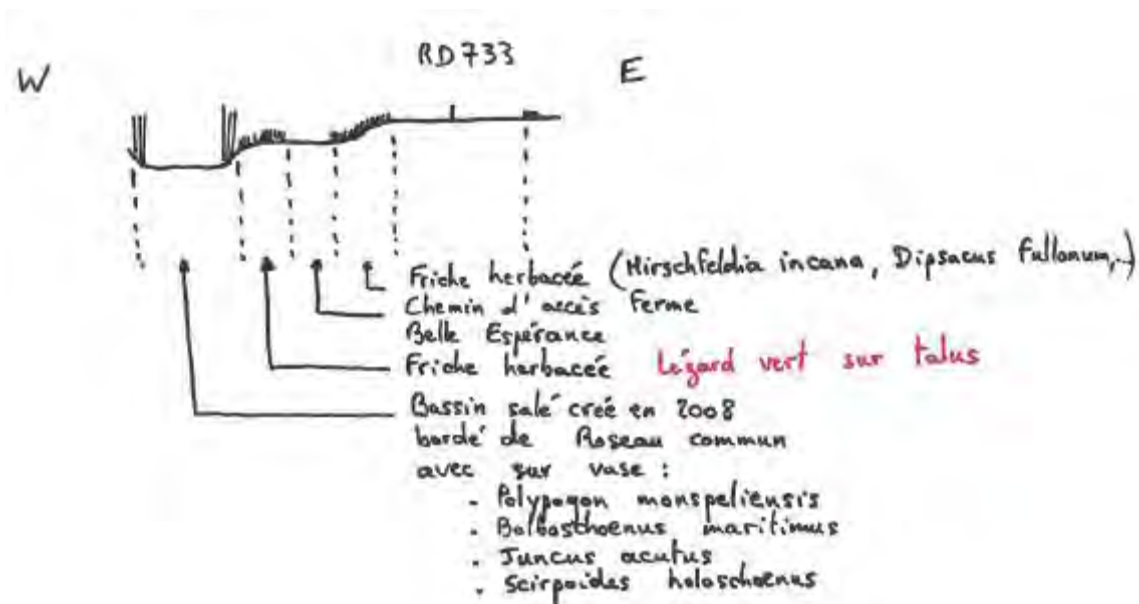 RD733
W
E
Friche herbacée (Hirschfeldia incana, Dipsacus fullonum,..)
Chemin d'accès Ferme
Belle Espérance
Friche herbacée Lézard vert sur talus
Bassin salé créé en 2008
bordé de Roseau commun
avec sur vase :
. Polypogon monspeliensis
. Bolboschoenus maritimus
. Juncus acutus
. Scirpoides holoschoenus